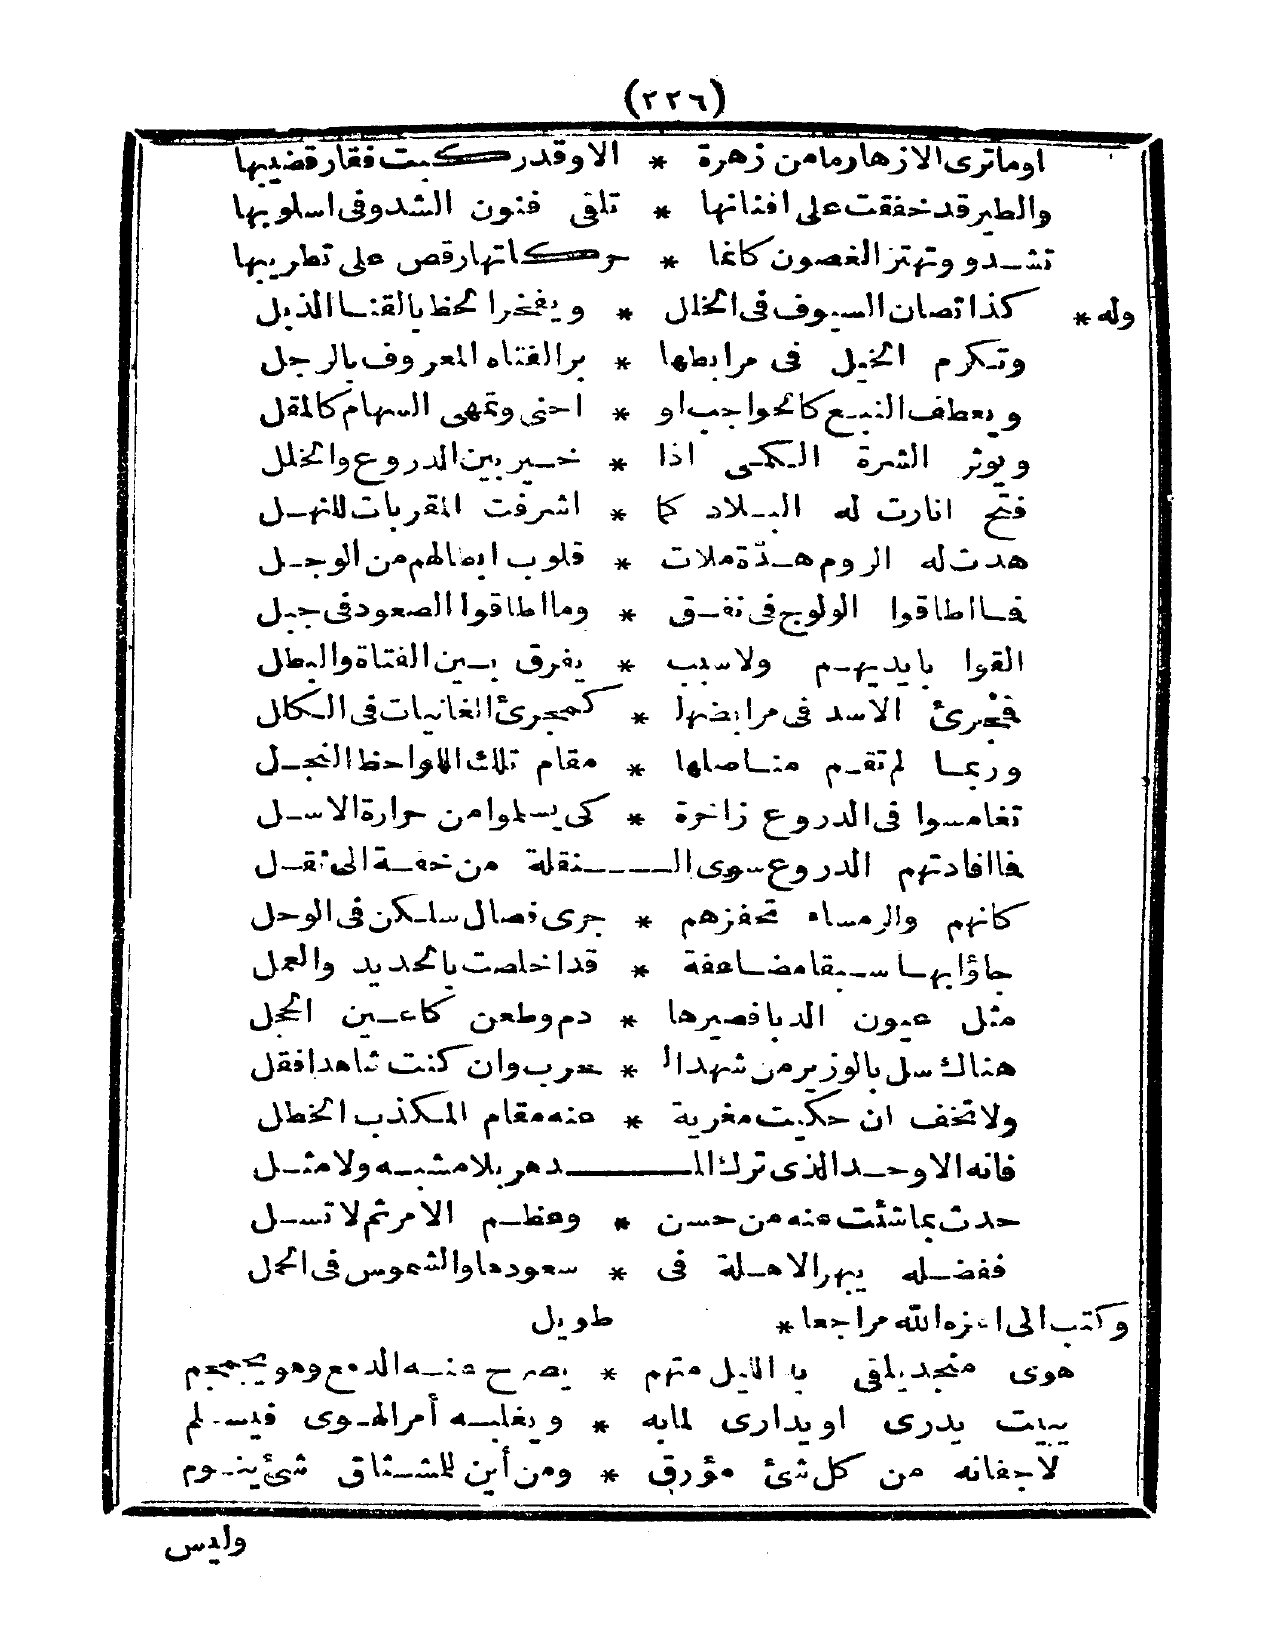 (٢٢٦)
اوماترى الازهار مامن زهرة * الا وقد ركبت فقار قضيبها
والطير قد خفقت على افنانها * تلقى فنون الشدو فى اسلوبها
تشدو وتهتز الغصون كانما * حركاتها رقص على تطريبها
وله * كذا تصان السيوف فى الخلل * ويفخر الخط بالقنا الذبل
وتكرم الخيل فى مرابطها * بر الفتاه المعروف بالرجل
ويعطف النبع كالحواجب او * احنى وتمهى السهام كالمقل
ويوثر الثرة الكمى اذا * خير بين الدروع والخلل
فتح انارت له البلاد كما * اشرفت المقربات للنهل
هدت له الروم هدّة ملات * قلوب ابطالهم من الوجل
فما اطاقوا الولوج فى نفق * وما اطاقوا الصعود فى جبل
القوا بايديهم ولا سبب * يفرق بين الفتاة والبطل
فمجرئ الاسد فى مرابضها * كمجرئ الغانيات فى الكلل
وربما لم تقم مناصلها * مقام تلك اللواحظ النجل
تغامسوا فى الدروع زاخرة * كى يسلموا من حرارة الاسل
فما افادتهم الدروع سوى الـنقلة من خفة الى ثقل
كانهم والرماء تحفزهم * جرى فصال سلكن فى الوحل
جاؤا بها سبقا مضاعفة * قد اخلصت بالحديد والعمل
مثل عيون الدبا فصيرها * دم وطعن كاعين الحجل
هناك سل بالوزير من شهد ا * حرب وان كنت شاهدا فقل
ولا تخف ان حكيت مغربة * عنه مقام المكذب الخطل
فانه الاوحد الذى ترك الـدهر بلا مشبه ولا مثل
حدث بما شئت عنه من حسن * وعظم الامر ثم لا تسل
ففضله يبهر الاهلة فى * سعودها والشموس فى الحمل
وكتب الى اعزه الله مراجعا * طويل
هوى منجد يلقى با الليل متهم * يصرح عنه الدمع وهو يجمجم
يبيت يدرى او يدارى لمابه * ويغلبه أمر الهوى فيسلم
لاجفانه من كل شئ مؤرق * ومن أين للمشتاق شئ ينوم
وليس